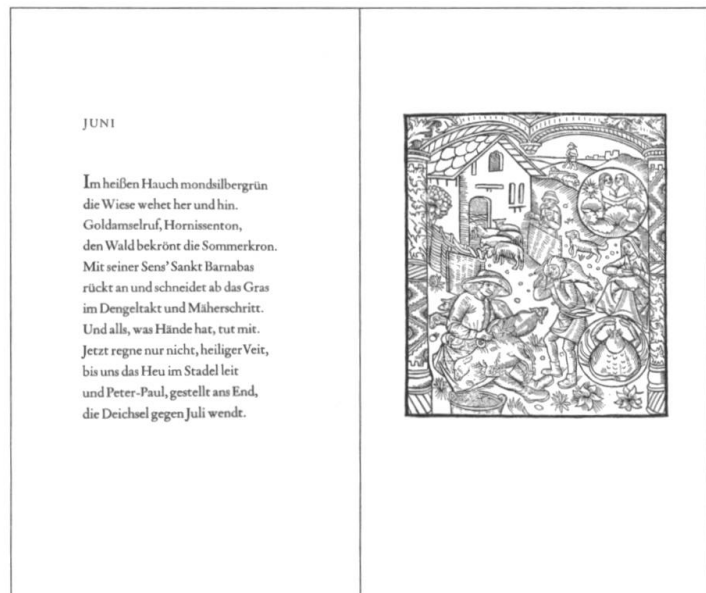 JUNI
Im heißen Hauch mondsilbergrün
die Wiese wehet her und hin.
Goldamselruf, Hornissenton,
den Wald bekrönt die Sommerkron.
Mit seiner Sens’ Sankt Barnabas
rückt an und schneidet ab das Gras
im Dengeltakt und Mäherschritt.
Und alls, was Hände hat, tut mit.
Jetzt regne nur nicht, heiliger Veit,
bis uns das Heu im Stadel leit
und Peter-Paul, gestellt ans End,
die Deichsel gegen Juli wendt.